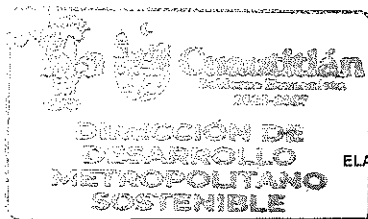 Cuautitlán
DIRECCIÓN DE
DESARROLLO
METROPOLITANO
SOSTENIBLE
ELA